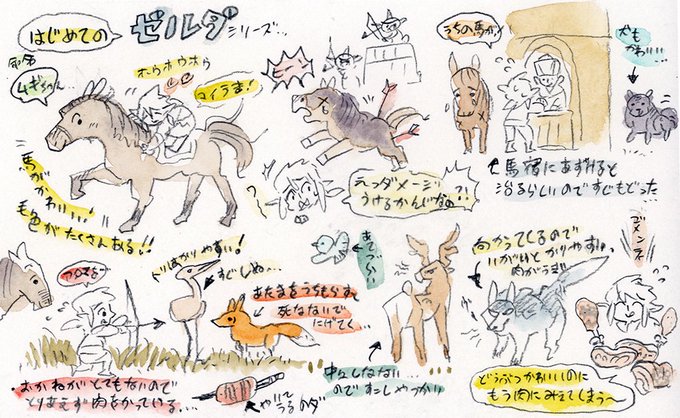 はじめての
ゼルダ
シリーズ…
命名
ムギちゃん…
ホウホウホウ
コイツ
うま!
馬が
かわいい!!
毛色がたくさんある!!
ピ
えっダメージ
うけるかんじなの?!
うちの馬が
犬も
かわいい…
馬宿にあずけると
治るらしいのですぐもどった
トリはかりやすい!
すごしぬ…
あたまをうちもらす
死なないで
にげてく…
あてづらい
中々しなない
のですこしやっかい
向かってくるので
いがいとかりやすい。
肉がうまい
ゴメンネ
・おかねがとてもないので
とりあえず肉をかっている…
やいて
うるのダ
どうぶつかわいいのに
もう肉にみえてしまう〜